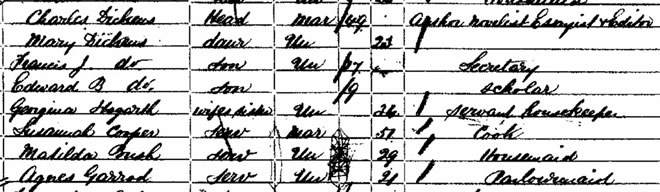 Charles Dickens Head Mar 49 Author Novelist Essayist & Editor
Mary Dickens daur Un 23
Francis J do son Un 17 Secretary
Edward B do son 9 scholar
Georgina Hogarth wifes sister Un servant housekeeper
Susannah Cooper Serv mar 51 Cook
Matilda Bush serv Un 29 Housemaid
Agnes Garrod Serv Un 21 Parlourmaid